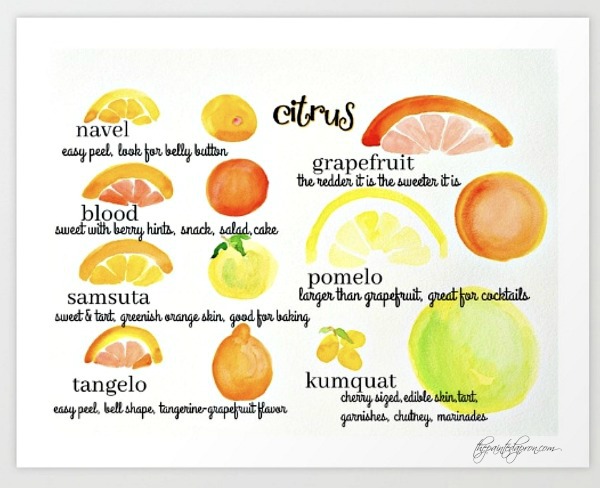 citrus
navel
easy peel, look for belly button
blood
sweet with berry hints, snack, salad, cake
samsuta
sweet & tart, greenish orange skin, good for baking
tangelo
easy peel, bell shape, tangerine-grapefruit flavor
grapefruit
the redder it is the sweeter it is
pomelo
larger than grapefruit, great for cocktails
kumquat
cherry sized, edible skin, tart,
garnishes, chutney, marinades
thepaintedapron.com